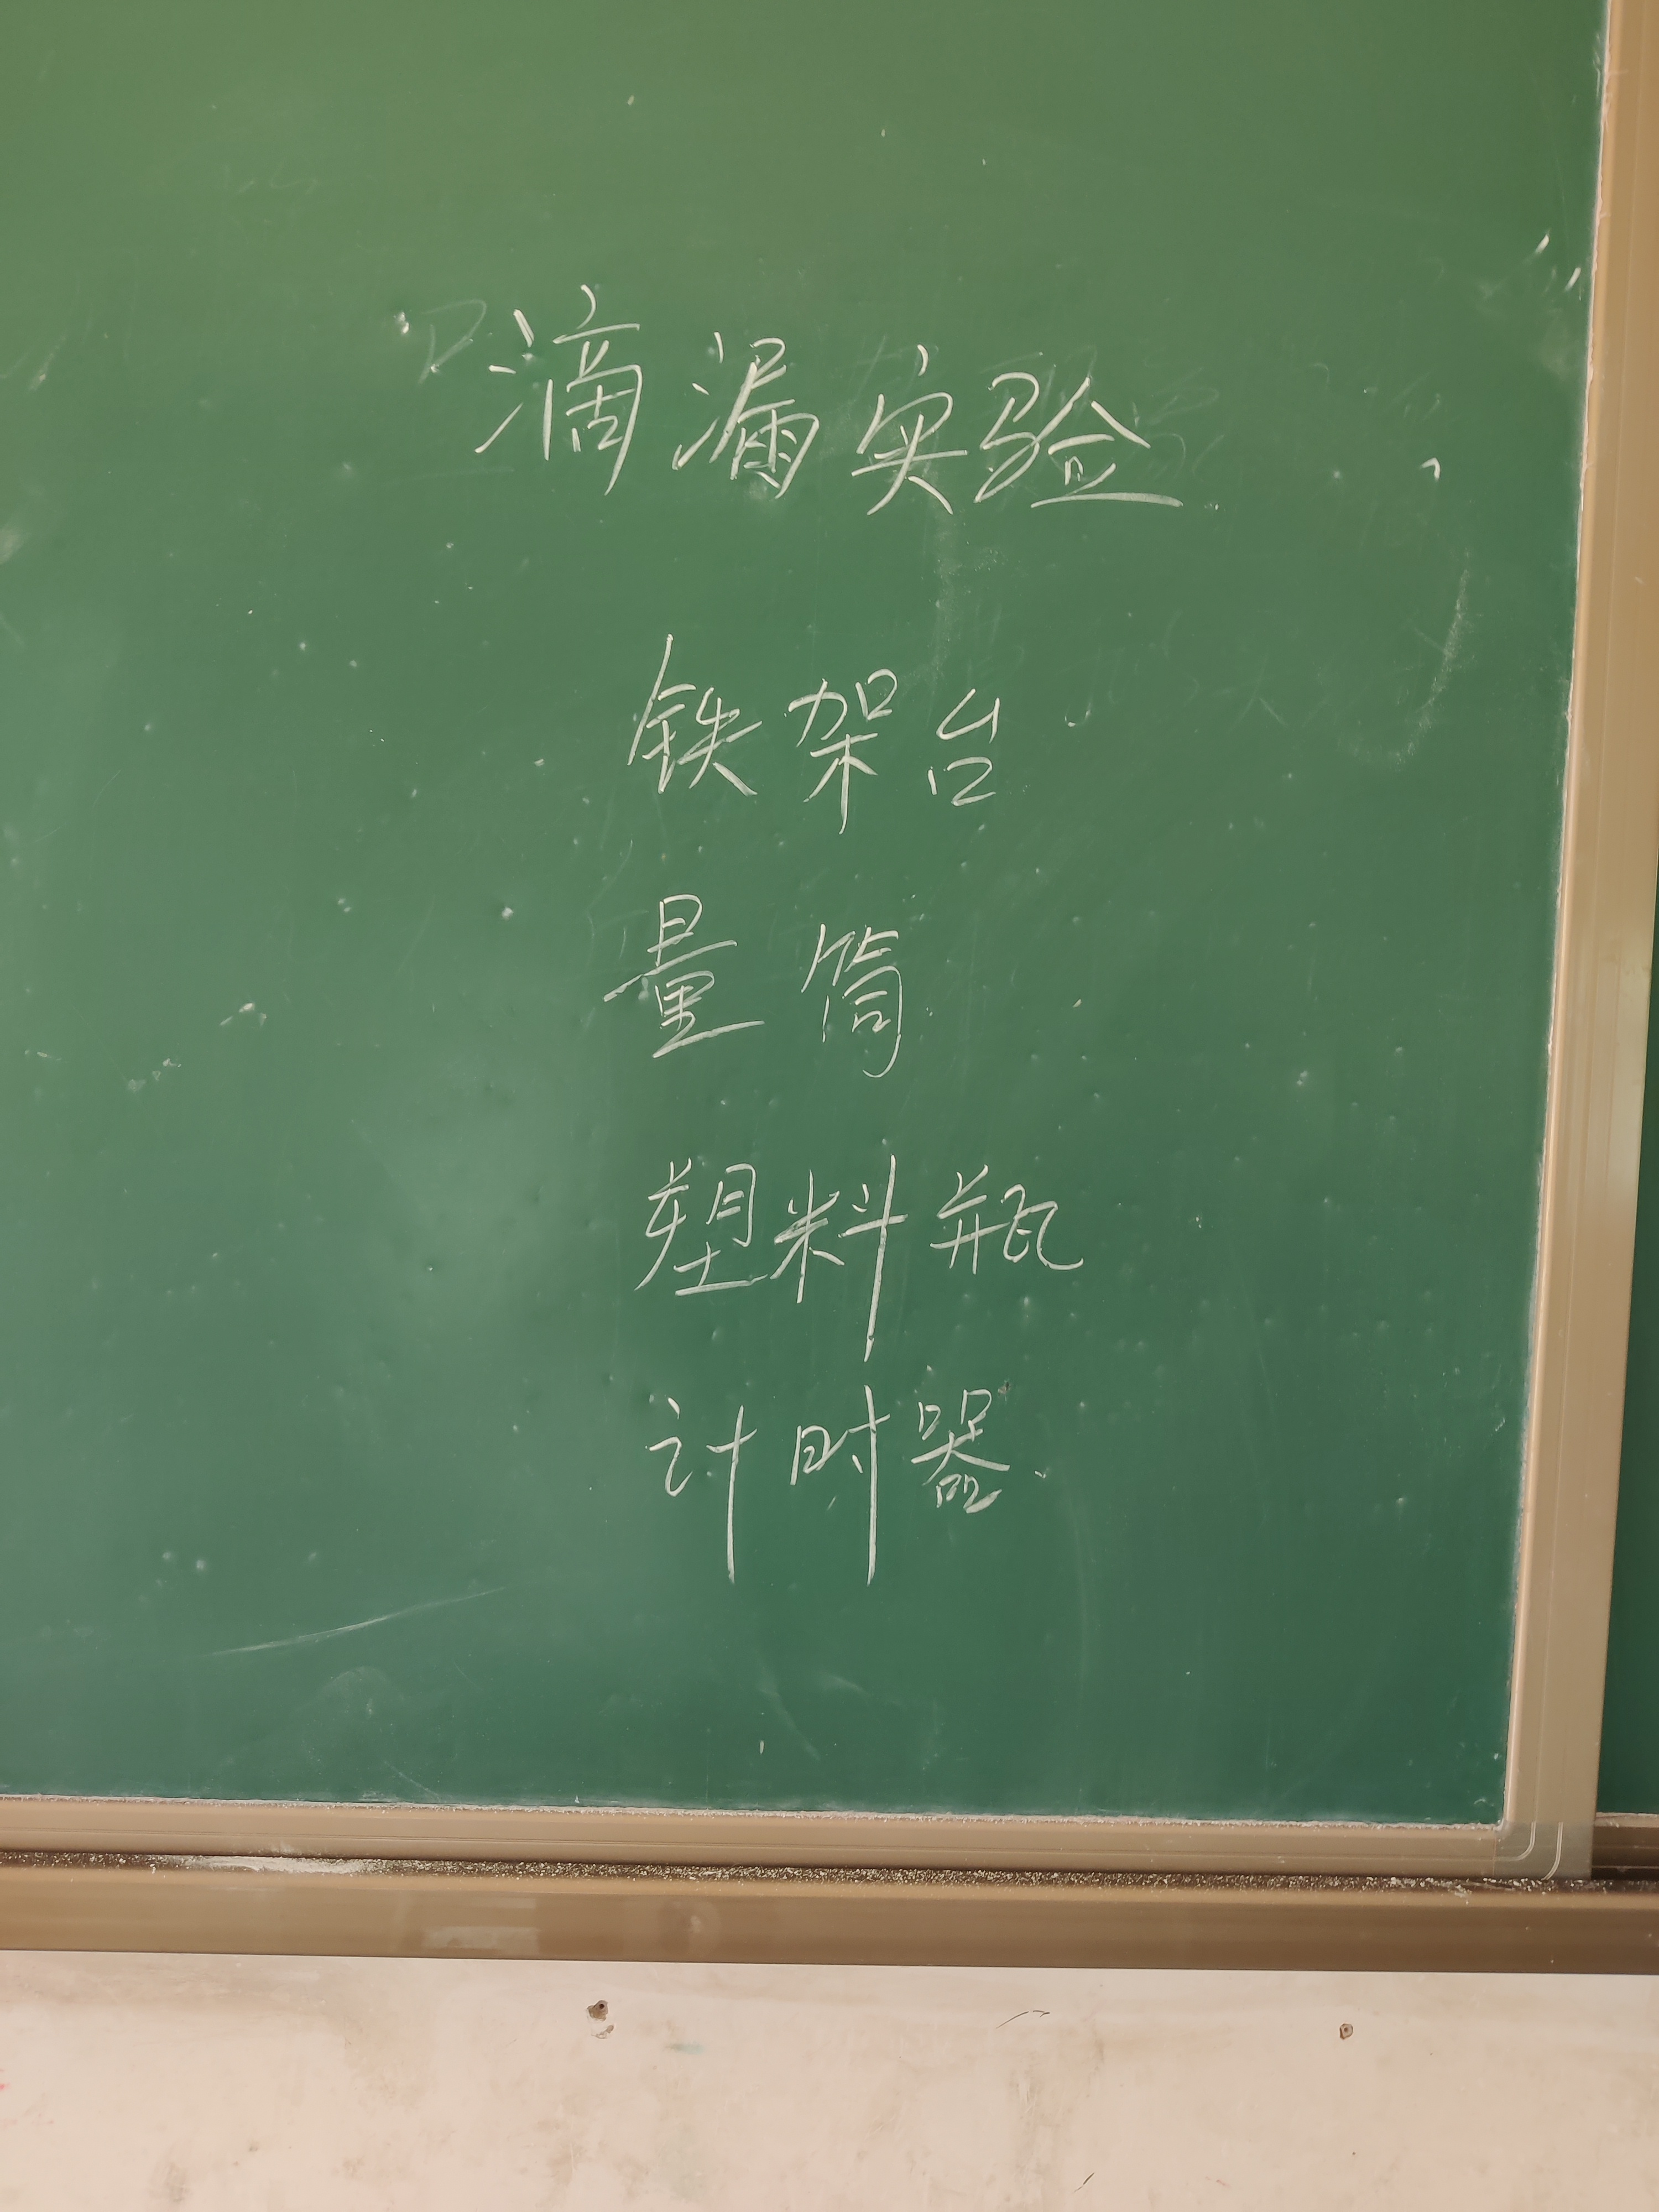 滴漏实验
铁架台
量筒
塑料瓶
计时器